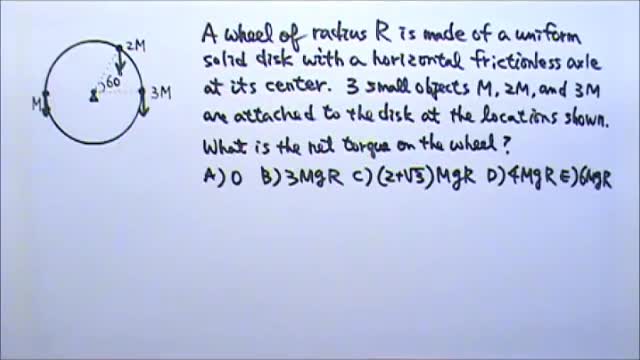 A wheel of radius R is made of a uniform
solid disk with a horizontal frictionless axle
at its center. 3 small objects M, 2M, and 3M
are attached to the disk at the locations shown.
What is the net torque on the wheel?
A) 0 B) 3MgR C) (2+√3)MgR D) 4MgR E) 6MgR
2M
60
M
3M